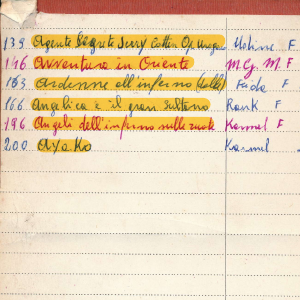 139 Agente Segreto Jerry Cotton Op. Uragano F
146 Avventura in Oriente M.G.M. F
163 Ardenne all'inferno (dalle) Fida F
166 Angelica e il gran sultano Rank F
196 Angeli dell'inferno sulle ruote Karmel F
200 Ayako Karmel